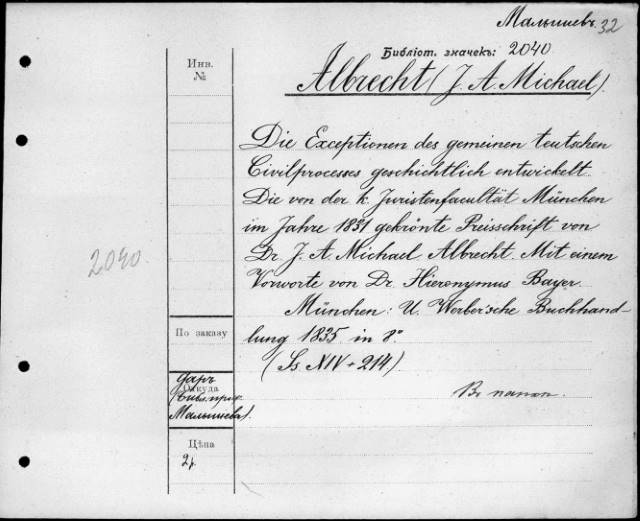 Малышевъ. 32
Библіот. значекъ: 2040
Albrecht (J. A. Michael).
Инв.
№
Die Exceptionen des gemeinen teutschen
Civilprocesses geschichtlich entwickelt.
Die von der k. Juristenfacultät München
im Jahre 1831 gekrönte Preisschrift von
Dr. J. A. Michael Albrecht. Mit einem
Vorworte von Dr. Hieronymus Bayer.
München: U. Werber'sche Buchhand-
lung 1835. in 8°
(Ss. XIV + 214).
2040.
По заказу
даръ
Откуда
(библ. проф.
Малышева).
Въ папкѣ.
Цѣна
2р.